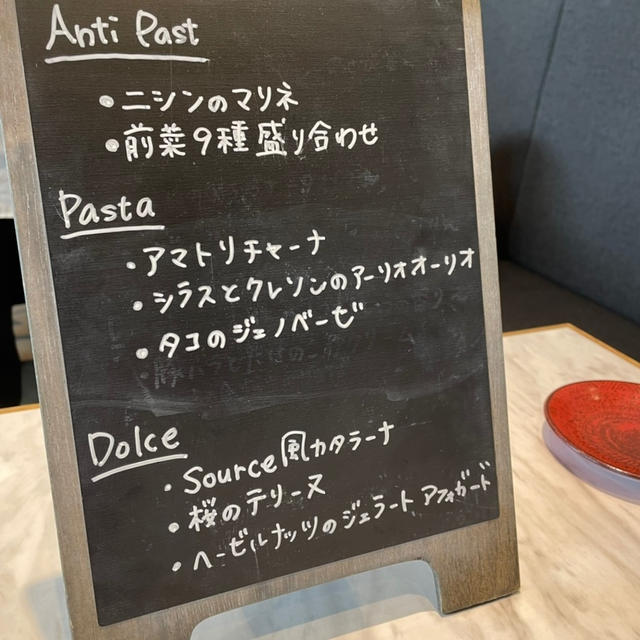 Anti Past
・ニシンのマリネ
・前菜9種盛り合わせ
Pasta
・アマトリチャーナ
・シラスとクレソンのアーリオオーリオ
・タコのジェノベーゼ
Dolce
・Source風カタラーナ
・桜のテリーヌ
・ヘーゼルナッツのジェラート アフォガード